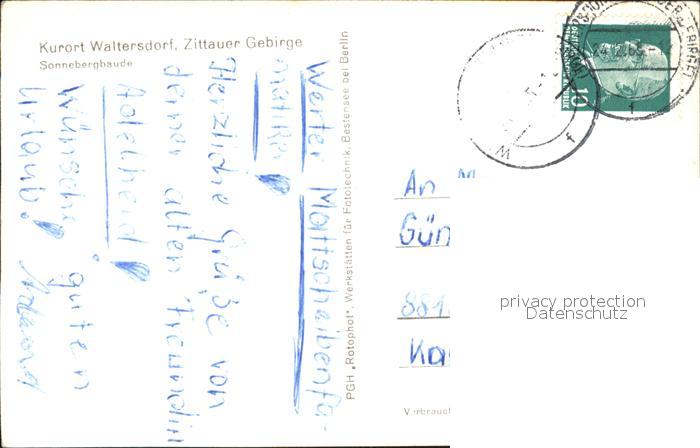 Kurort Waltersdorf, Zittauer Gebirge
Sonnebergbaude
Werter Mattscheibenfa-
Herzliche Grüße von
deiner alten Freundin
Adelheid!
Wünsche guten
Urlaub!
PGH „Rotophot", Werkstätten für Fototechnik, Bestensee bei Berlin
10
An M
Gün
881
Ka
privacy protection
Datenschutz
Verbrauc